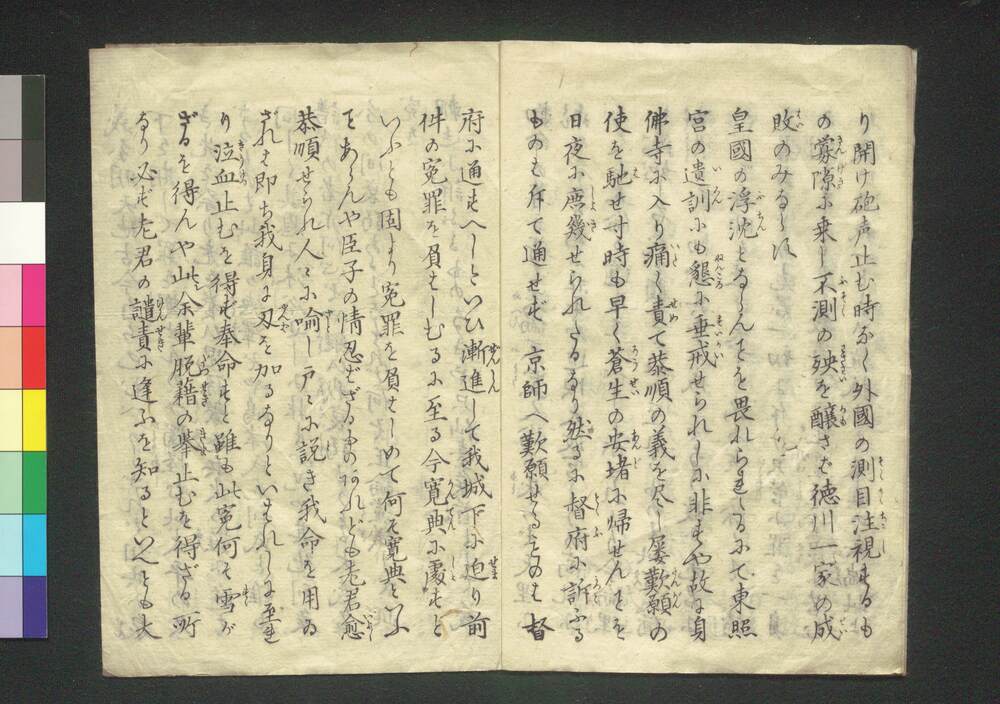 り開け砲声止む時なく外國の測目注視するも
の釁隙に乗し不測の殃を醸さは徳川一家の成
敗のみならす
皇國の浮沈とならんことを畏れられてなり東照
宮の遺訓にも懇に垂戒せられしに非すや故に身
佛寺に入り痛く責て恭順の義を尽し屡歎願の
使を馳せ寸時も早く蒼生の安堵に帰せんことを
日夜に庶幾せられたるなり然るに督府に訴ふる
ものも斥て通せす京師へ歎願せるものも督
府に通すへしといひ漸進して我城下に迫り前
件の冤罪を負はしむるに至る今寛典に處すと
いふとも固より冤罪を負はしめて何そ寛典といふ
とあらんや臣子の情忍ざるものあれども老君愈
恭順せられ人に喩し戸に説き我命を用ゐ
されは即ち我身に刃を加るなりといはれしに至れ
り泣血止むを得す奉命すと雖も此冤何そ雪が
ざるを得んや此余輩脱藉の挙止むを得ざる所
なり必す老君の譴責に逢ふを知るといへとも大